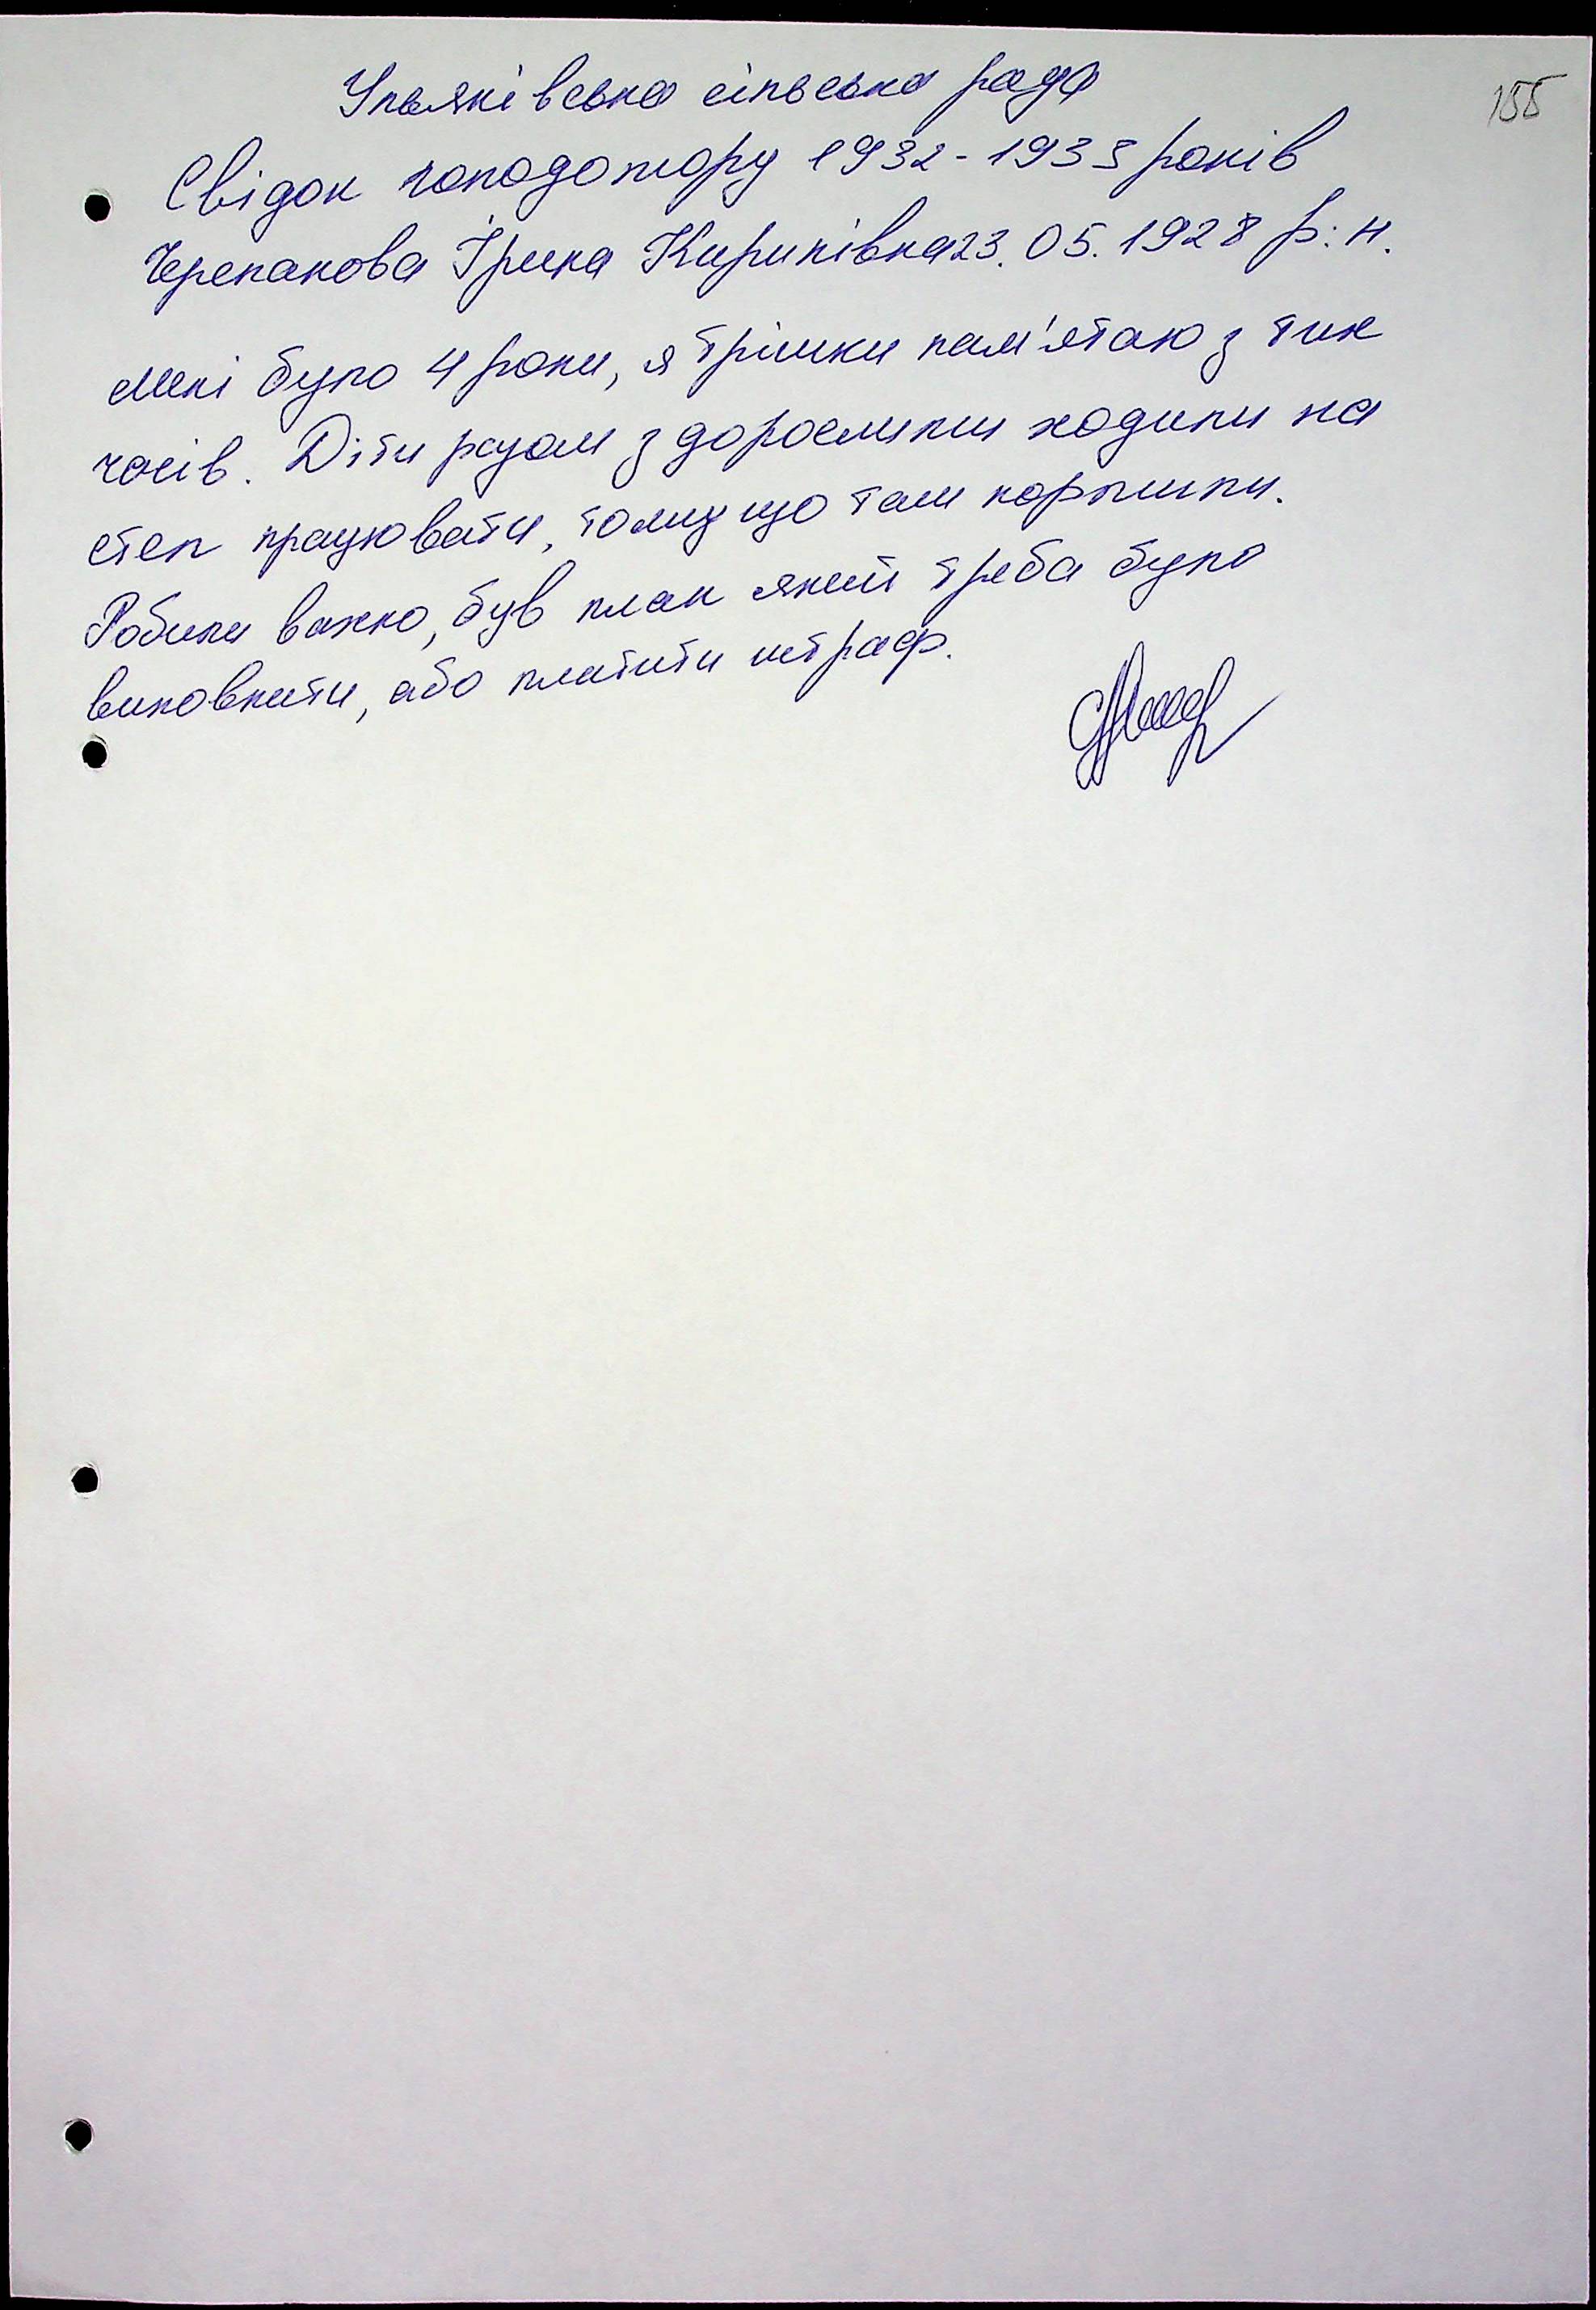 155
Ульяківська сільська рада
Свідок голодомору 1932-1933 років
Черепанова Ірина Кирилівна 23.05.1928 р.н.
Мені було 4 роки, я трішки пам'ятаю з тих
часів. Діти разом з дорослими ходили на
степ працювати, тому що там кормили.
Робили важко, був план який треба було
виповнити, або платити штраф.